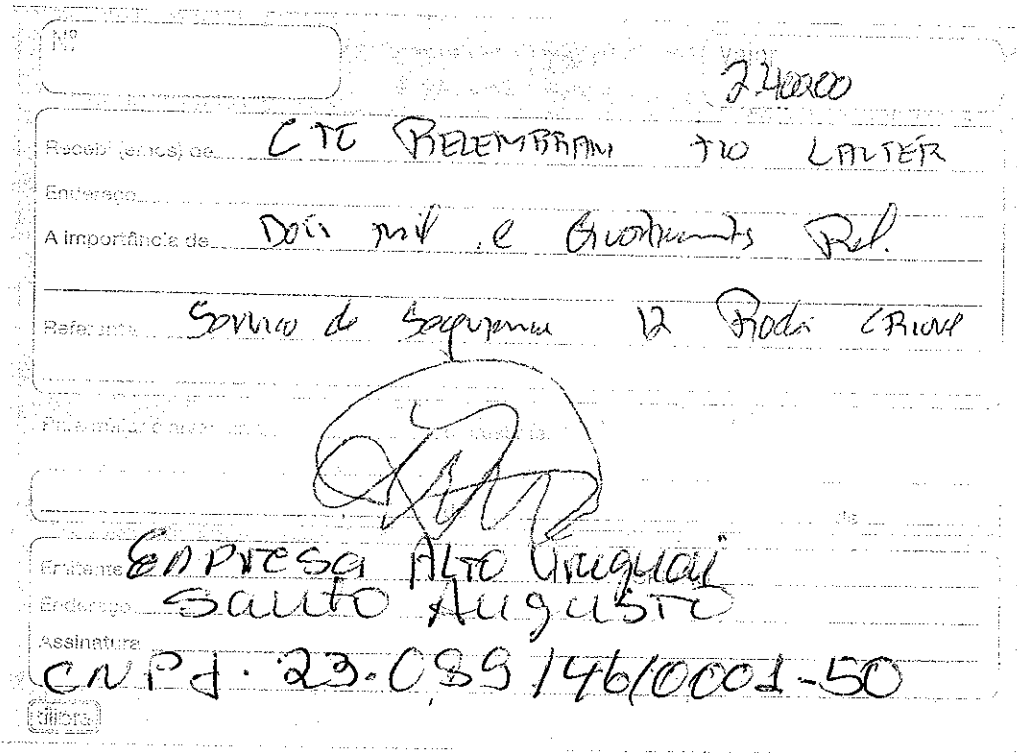 Nº
Valor
240000
Recebi (emos) de CTC RELEMBRAM TIO LAUTÉR
Endereço
A importância de Dois mil e Quatrocentos
Referente Serviço de Segurança 12 Roda
Emitente Empresa Alto Uruguai
Endereço Santo Augusto
Assinatura
CNPJ. 23.089 146/0001-50
tilibra